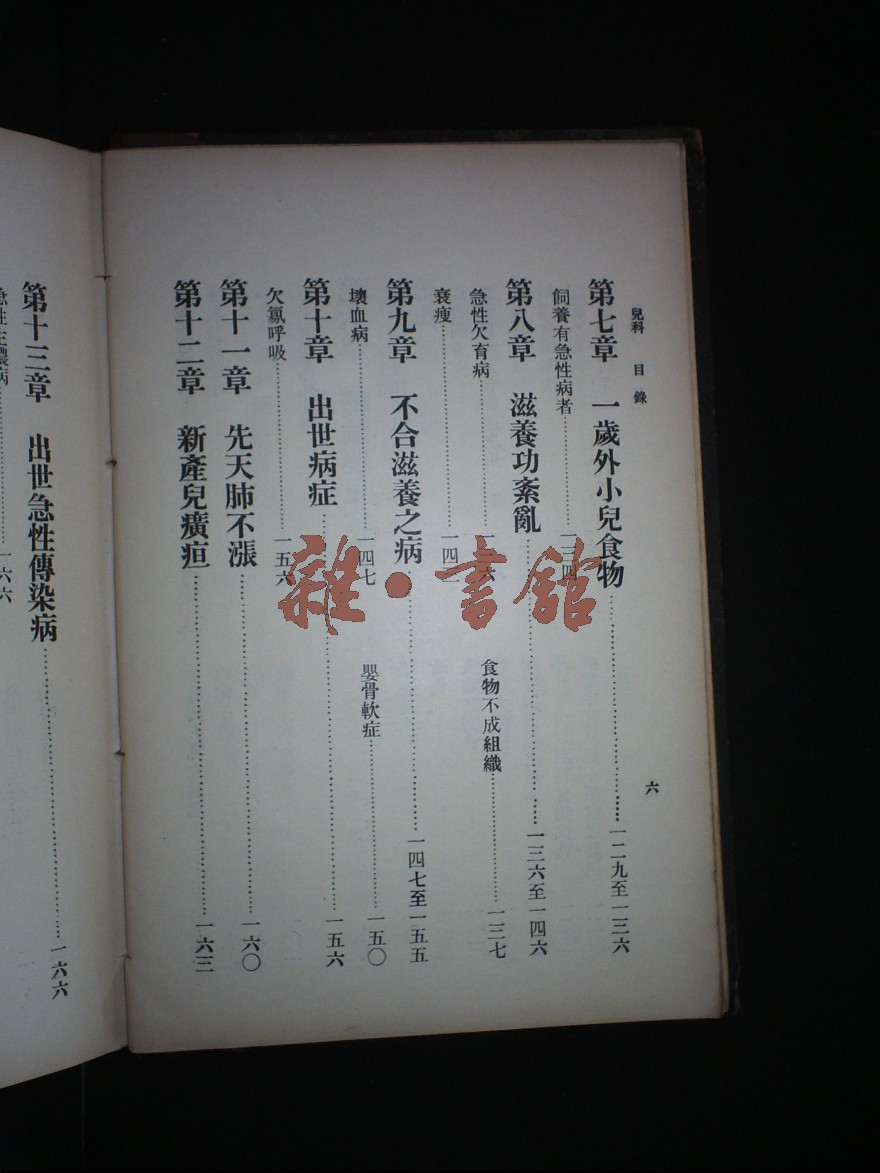 兒科 目錄 六
第七章 一歲外小兒食物 一二九至一三六
飼養有急性病者 一三四
第八章 滋養功紊亂 一三六至一四六
急性欠育病 食物不成組織 一三七
衰瘦
第九章 不合滋養之病 一四七至一五五
壞血病 一四七 嬰骨軟症 一五〇
第十章 出世病症 一五六
欠氣呼吸 一五六
第十一章 先天肺不漲 一六〇
第十二章 新產兒癀疸 一六三
第十三章 出世急性傳染病 一六六
一六六
雜·書館